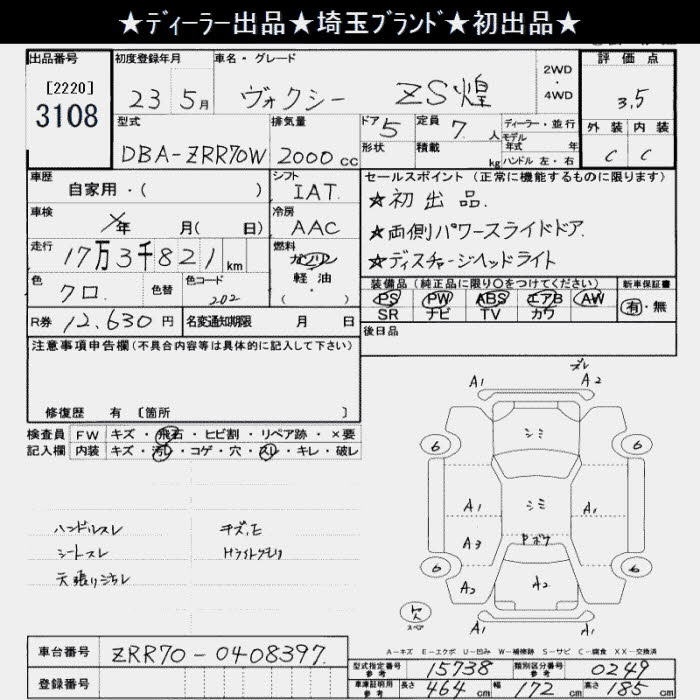 ★ディーラー出品★埼玉ブランド★初出品★
出品番号 初度登録年月 車名・グレード 2WD・4WD 評価点
[2220] 3108 23 5月 ヴォクシー ZS煌 3.5
型式 排気量 ドア 5 定員 7 人 ディーラー・並行 外装 内装
モデル年式 年
DBA-ZRR70W 2000cc 形状 積載 kg ハンドル 左・右 C C
車歴 シフト セールスポイント(正常に機能するものに限ります)
自家用・( ) IAT ★初出品.
車検 年 月( 日) 冷房 AAC ★両側パワースライドドア.
走行 17万3千821km 燃料 ガソリン ★ディスチャージヘッドライト
色 クロ. 色替 色コード 202 軽油 ( ) 装備品(純正品に限り○をつけてください) 新車保証書
PS PW ABS エアB AW 有・無
R券 12,630円 名変通知期限 月 日 SR ナビ TV カワ
注意事項申告欄(不具合内容等は具体的に記入して下さい) 後日品
修復歴 有 〔箇所 〕
検査員 FW キズ・飛石・ヒビ割・リペア跡・×要
記入欄 内装 キズ・汚レ・コゲ・穴・スレ・キレ・破レ
ハンドルスレ キズ,E
シートスレ Hライトクモリ
天張りヨゴレ
ズレ
A1 A2
6 シミ 6
A1 シミ A1
A3 Pボウ
6 6
A2 A2
スペア
A1 A1
A-キズ E-エクボ U-凹み W-補修跡 S-サビ C-腐食 XX-交換済
車台番号 ZRR70-0408397. 型式指定番号 参考 15738 類別区分番号 参考 0249
登録番号 車庫証明用 参考 長さ 464cm 幅 172cm 高さ 185cm